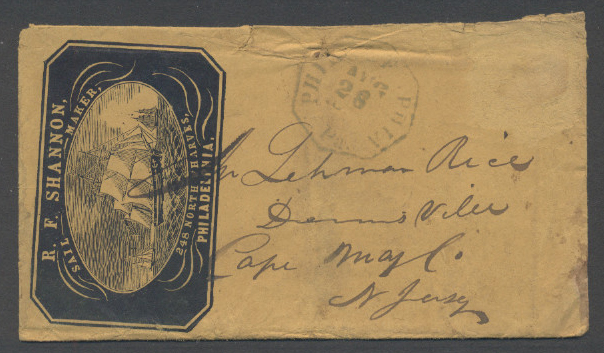 R. F. SHANNON,
SAIL MAKER,
248 NORTH WHARVES,
PHILADELPHIA.
AUG
28
Lehman Rice
Dennis Ville
Cape May Co.
N Jersey